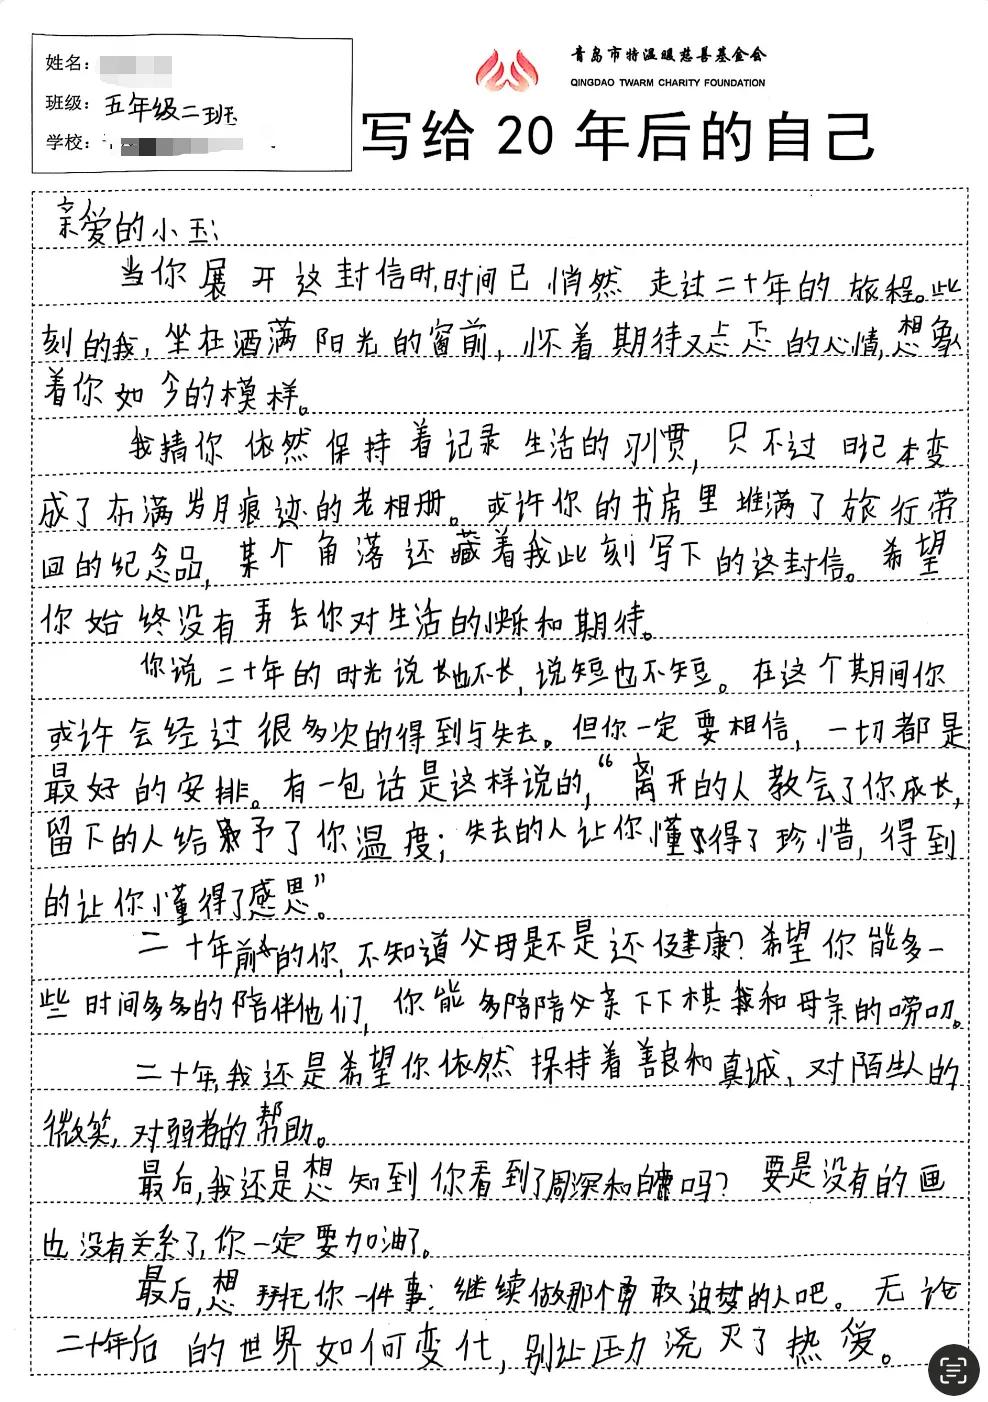 姓名:
青岛市特温暖慈善基金会
QINGDAO TWARM CHARITY FOUNDATION
班级: 五年级二班
学校:
写给 20 年后的自己
亲爱的小玉:
当你展开这封信时,时间已悄然走过二十年的旅程。此
刻的我,坐在洒满阳光的窗前,怀着期待又忐忑的心情,想象
着你如今的模样。
我猜你依然保持着记录生活的习惯,只不过日记本变
成了布满岁月痕迹的老相册。或许你的书房里堆满了旅行带
回的纪念品,某个角落还藏着我此刻写下的这封信。希望
你始终没有弄丢你对生活的快乐和期待。
你说二十年的时光说长也不长,说短也不短。在这个期间你
或许会经过很多次的得到与失去。但你一定要相信,一切都是
最好的安排。有一包话是这样说的,“离开的人教会了你成长,
留下的人给予了你温度;失去的人让你懂得了珍惜,得到
的让你懂得了感恩”。
二十年前的你,不知道父母是不是还健康?希望你能多一
些时间多多的陪伴他们,你能多陪陪父亲下下棋和母亲的唠叨。
二十年,我还是希望你依然保持着善良和真诚、对陌生人的
微笑,对弱者的帮助。
最后,我还是想知到你看到了周深和吗?要是没有的画
也没有关系了,你一定要加油了。
最后,想拜托你一件事:继续做那个勇敢追梦的人吧。无论
二十年后的世界如何变化,别让压力浇灭了热爱。